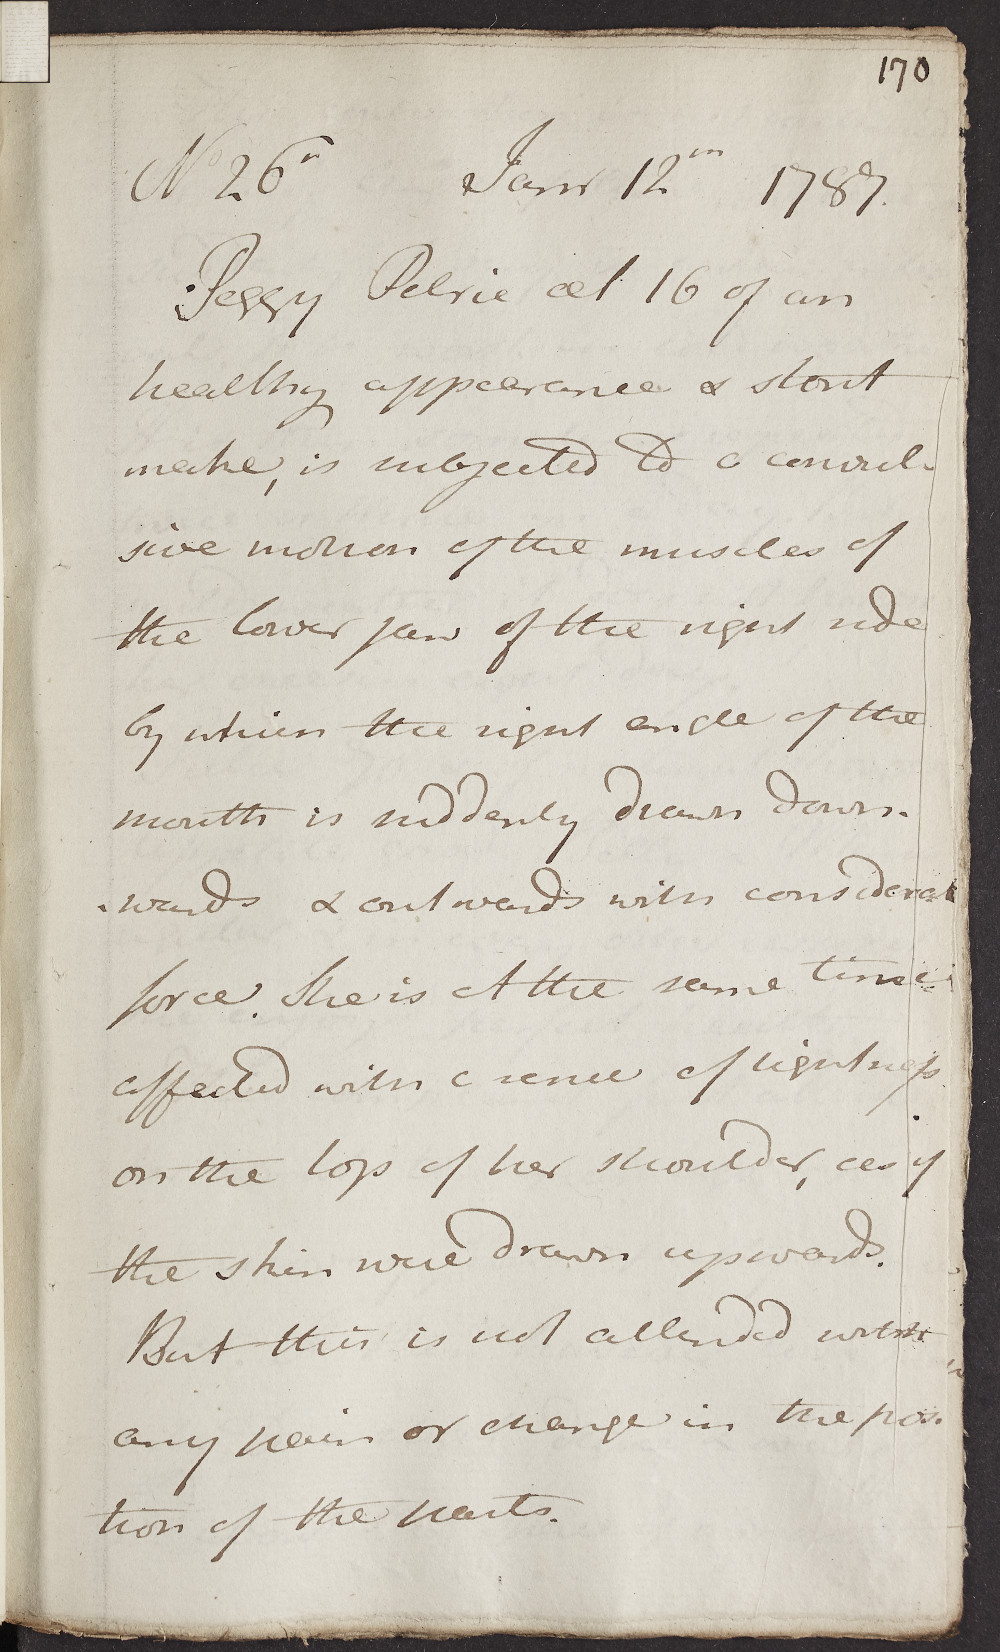 170
No 26th Janr 12th 1787.
Peggy Petrie æt 16 of an
healthy appearance & stout
make, is subjected to a convul-
sive motion of the muscles of
the lower jaw of the right side
by which the right angle of the
mouth is suddenly drawn down-
wards & outwards with considerab
force. She is at the same time
affected with a sense of tightness
on the top of her shoulder, as if
the skin were drawn upwards.
But this is not attended with
any pain or change in the posi-
tion of the parts.